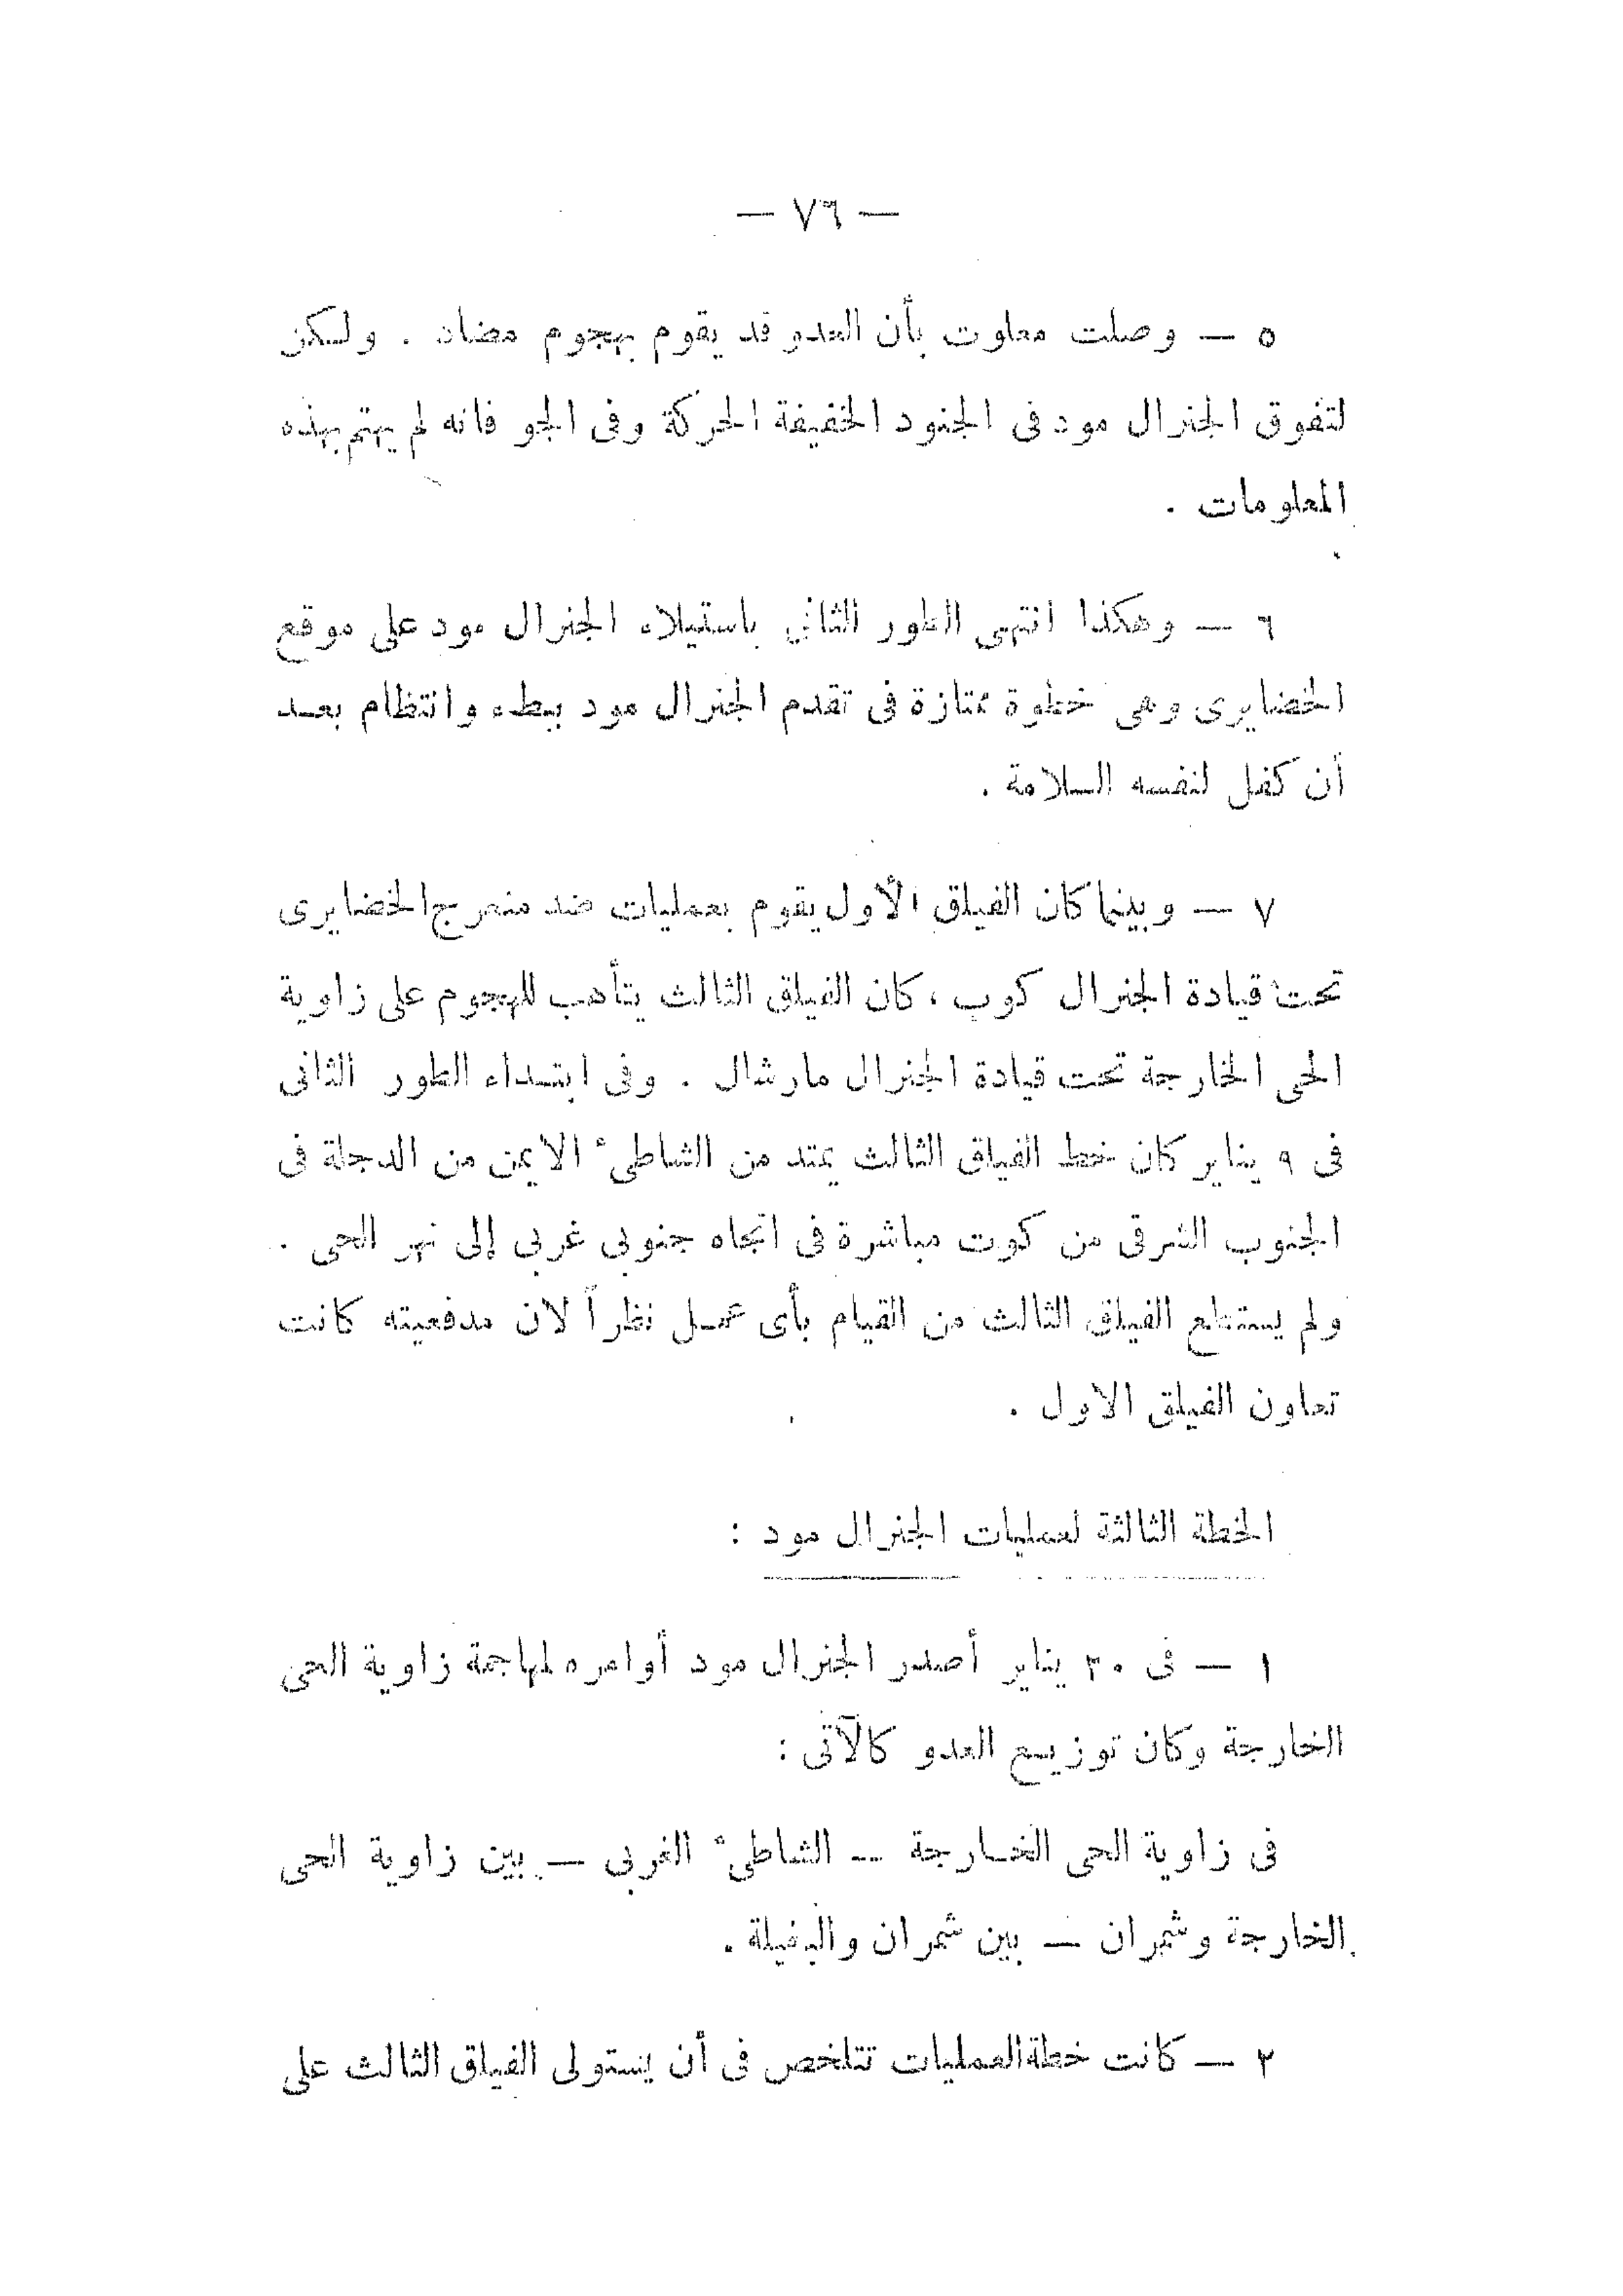 — ٧٦ —
٥ — وصلت معلوت بأن العدو قد يقوم بهجوم مضاد . ولكن
لتفوق الجنرال مود فى الجنود الخفيفة الحركة وفى الجو فانه لم يهتم بهذه
المعلومات .
٦ — وهكذا انتهى الطور الثانى باستيلاء الجنرال مود على موقع
الخضايرى وهى خطوة ممتازة فى تقدم الجنرال مود ببطء وانتظام بعد
أن كفل لنفسه السلامة .
٧ — وبينما كان الفيلق الأول يقوم بعمليات ضد منعرج الخضايرى
تحت قيادة الجنرال كوب ، كان الفيلق الثالث يتأهب للهجوم على زاوية
الحى الخارجة تحت قيادة الجنرال مارشال . وفى ابتداء الطور الثانى
فى ٩ يناير كان خط الفيلق الثالث يمتد من الشاطىء الايمن من الدجلة فى
الجنوب الشرقى من كوت مباشرة فى اتجاه جنوبى غربى إلى نهر الحى .
ولم يستطع الفيلق الثالث من القيام بأى عمل نظراً لان مدفعيته كانت
تعاون الفيلق الاول .
الخطة الثالثة لعمليات الجنرال مود :
١ — فى ٢٠ يناير أصدر الجنرال مود أوامره لمهاجمة زاوية الحى
الخارجة وكان توزيع العدو كالآتى :
فى زاوية الحى الخارجة — الشاطىء الغربى — بين زاوية الحى
الخارجة وشمران — بين شمران والبغيلة .
٢ — كانت خطة العمليات تتلخص فى أن يستولى الفيلق الثالث على